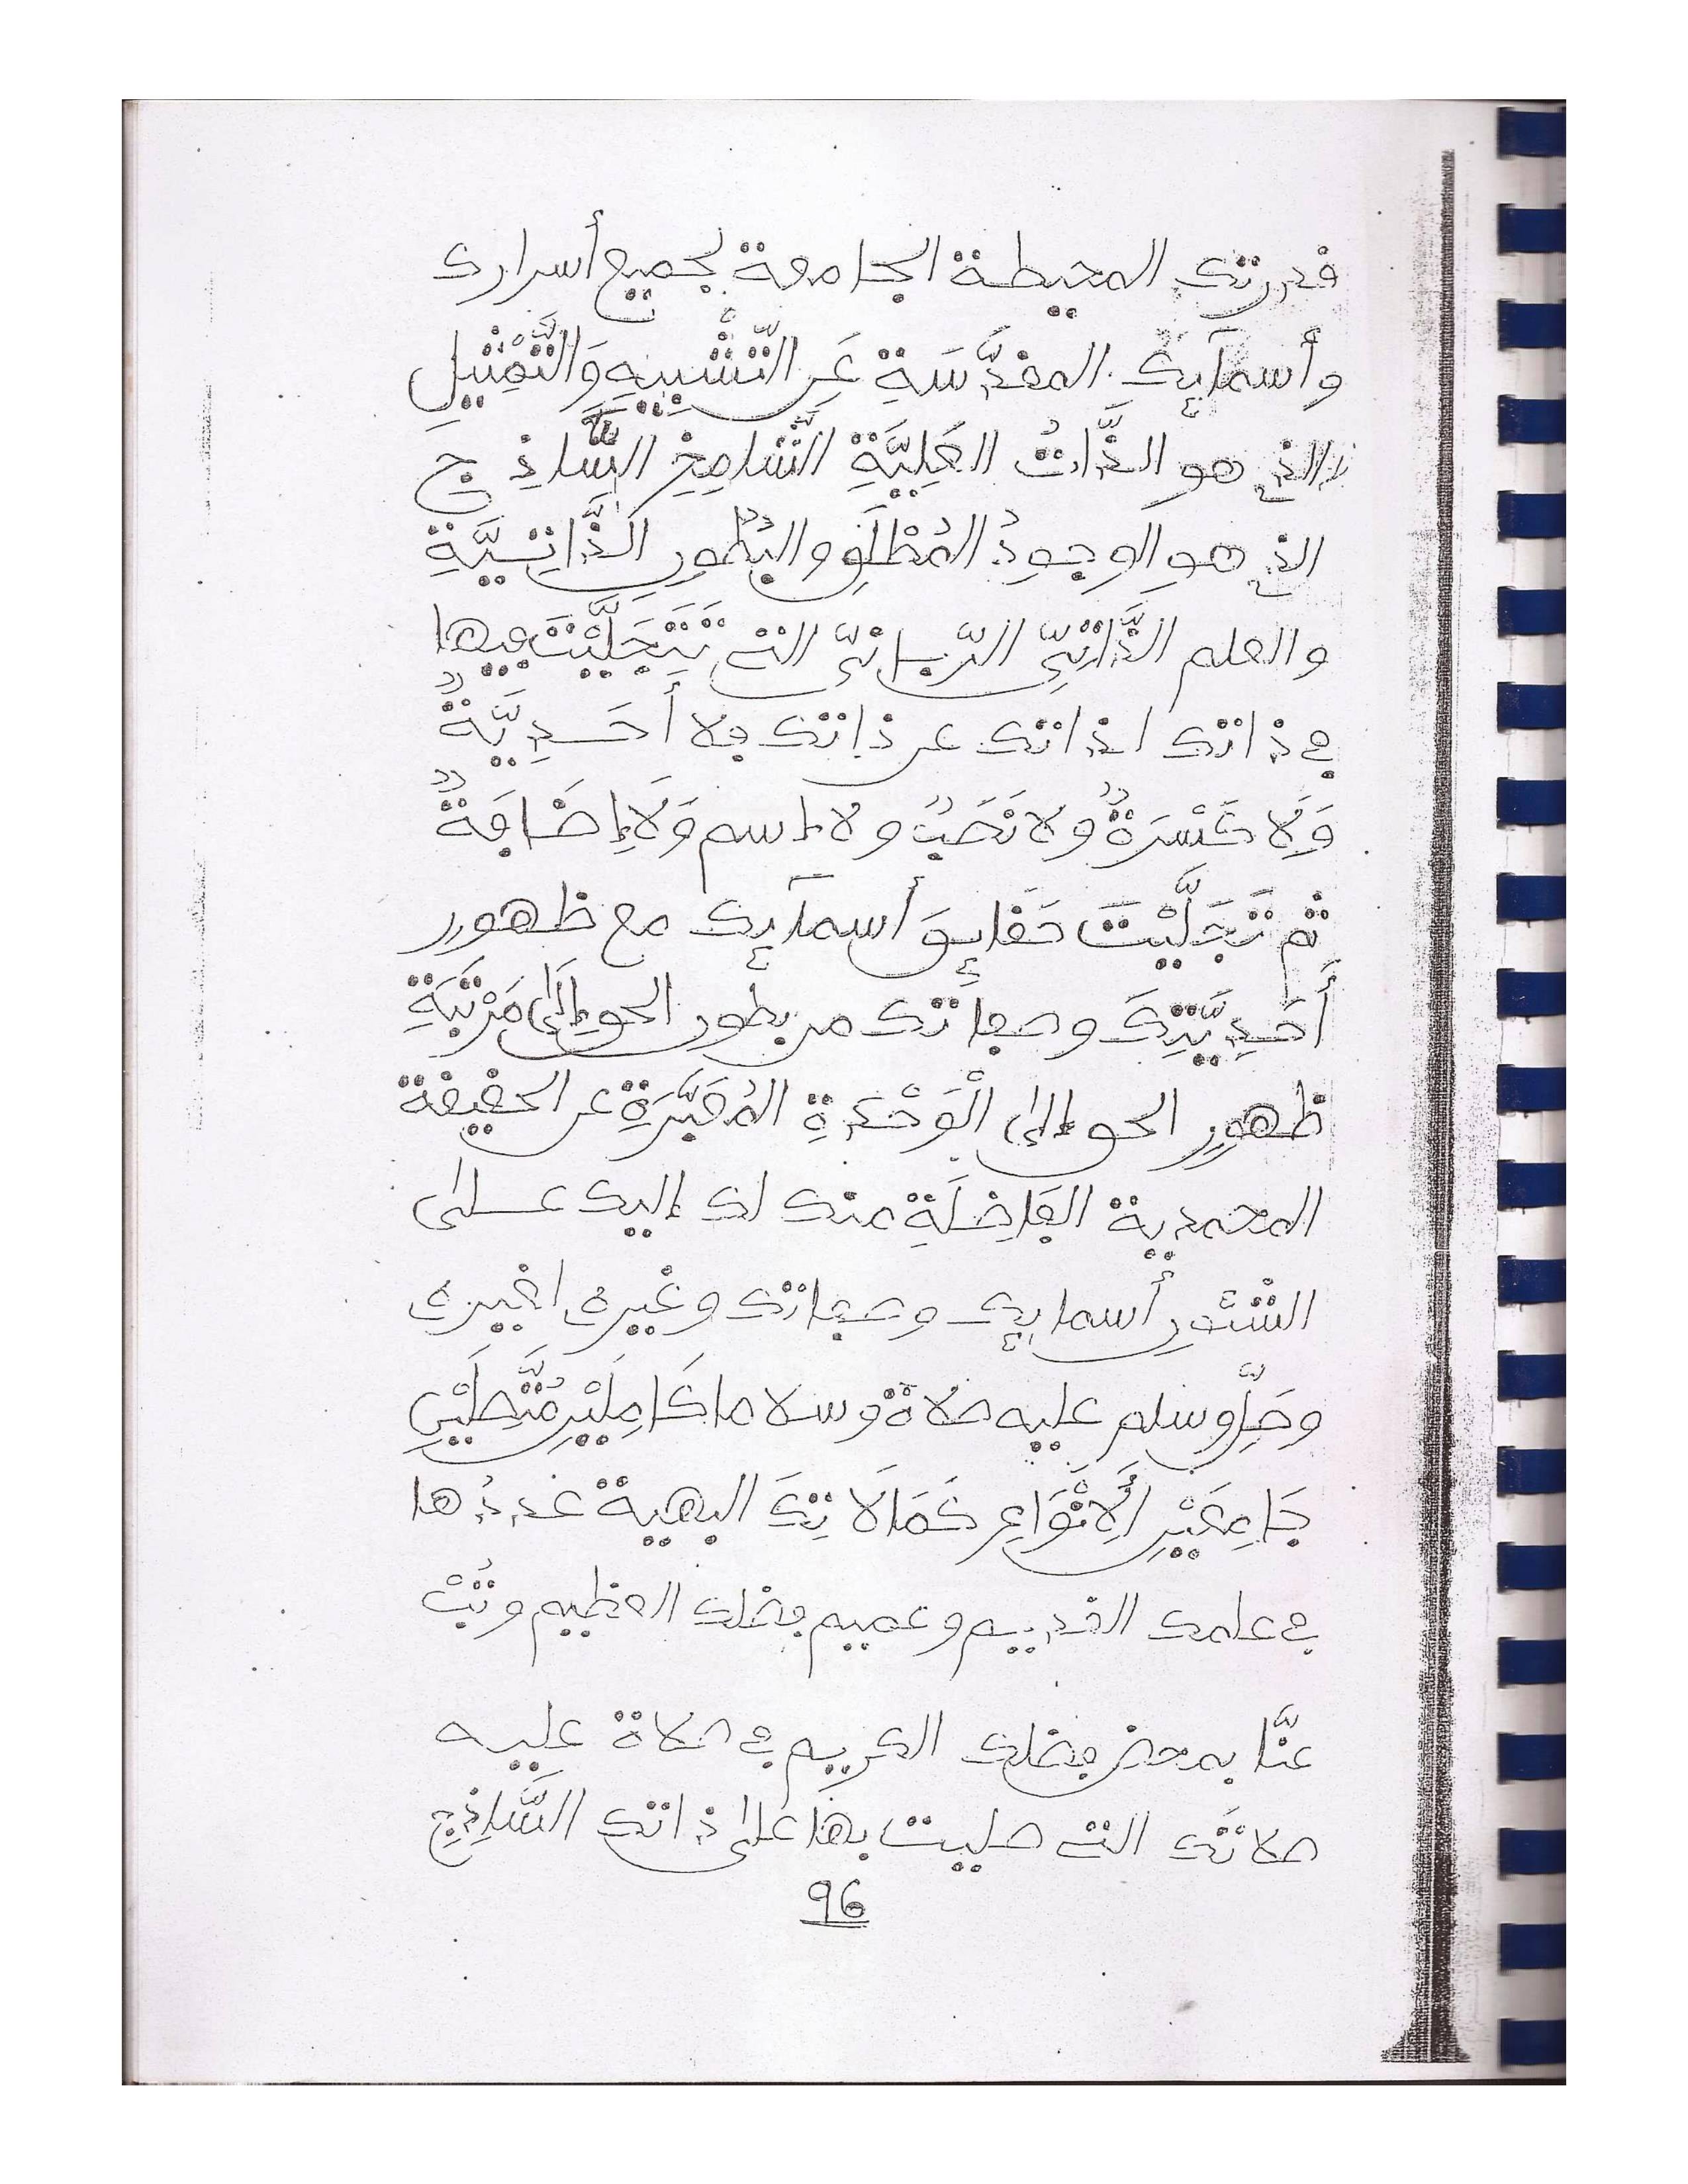 قدرتك المحيطة الجامعة لجميع أسرارك
وأسمآئك المقدَّسَةِ عَنِ التَّشْبِيهِ وَالتَّمْثِيلِ
الذي هو الذَّاتُ العَلِيَّةِ الشَّامِخِ السَّاذِجِ
الذي هو الوجودُ المُطْلَقِ والبُطُونِ الذَّاتِيَّةِ
والعلم الذَّاتِيِّ الرَّبانيِّ التي تَتَجَلَّيْتَ فيها
في ذاتك لذاتك عن ذاتك فلا أَحَدِيَّةٌ
وَلَا كَسْرَةٌ ولا نَعْتٌ ولا إسم وَلَا إِضَافَةٌ
ثم تَجَلَّيْتَ حَقَائِقَ أسمآئك مع ظهور
أَحَدِيَّتِكَ وصفاتك من بطون الحق إِلَى مَرْتَبَةِ
ظهور الحق إلى الْوَحْدَةِ المُعَبَّرَةِ عن الحقيقة
المحمدية الفَاضِلَةِ منك لك إليك على
الشئون أسمائك وصفاتك وغيرك لغيرك
وصَلِّ وسلم عليه صلاة وسلاما كَامِلَيْنِ مُتَّصِلَيْنِ
جَامِعَيْنِ لِأَنْوَاعِ كَمَالَاتِكَ البهية عددها
في علمك القديم وعميم فضلك العظيم وتُبْ
عنَّا بمحض فضلك الكريم في صلاة عليه
صلاتَك التي صليت بها على ذاتك السَّاذِجِ
96